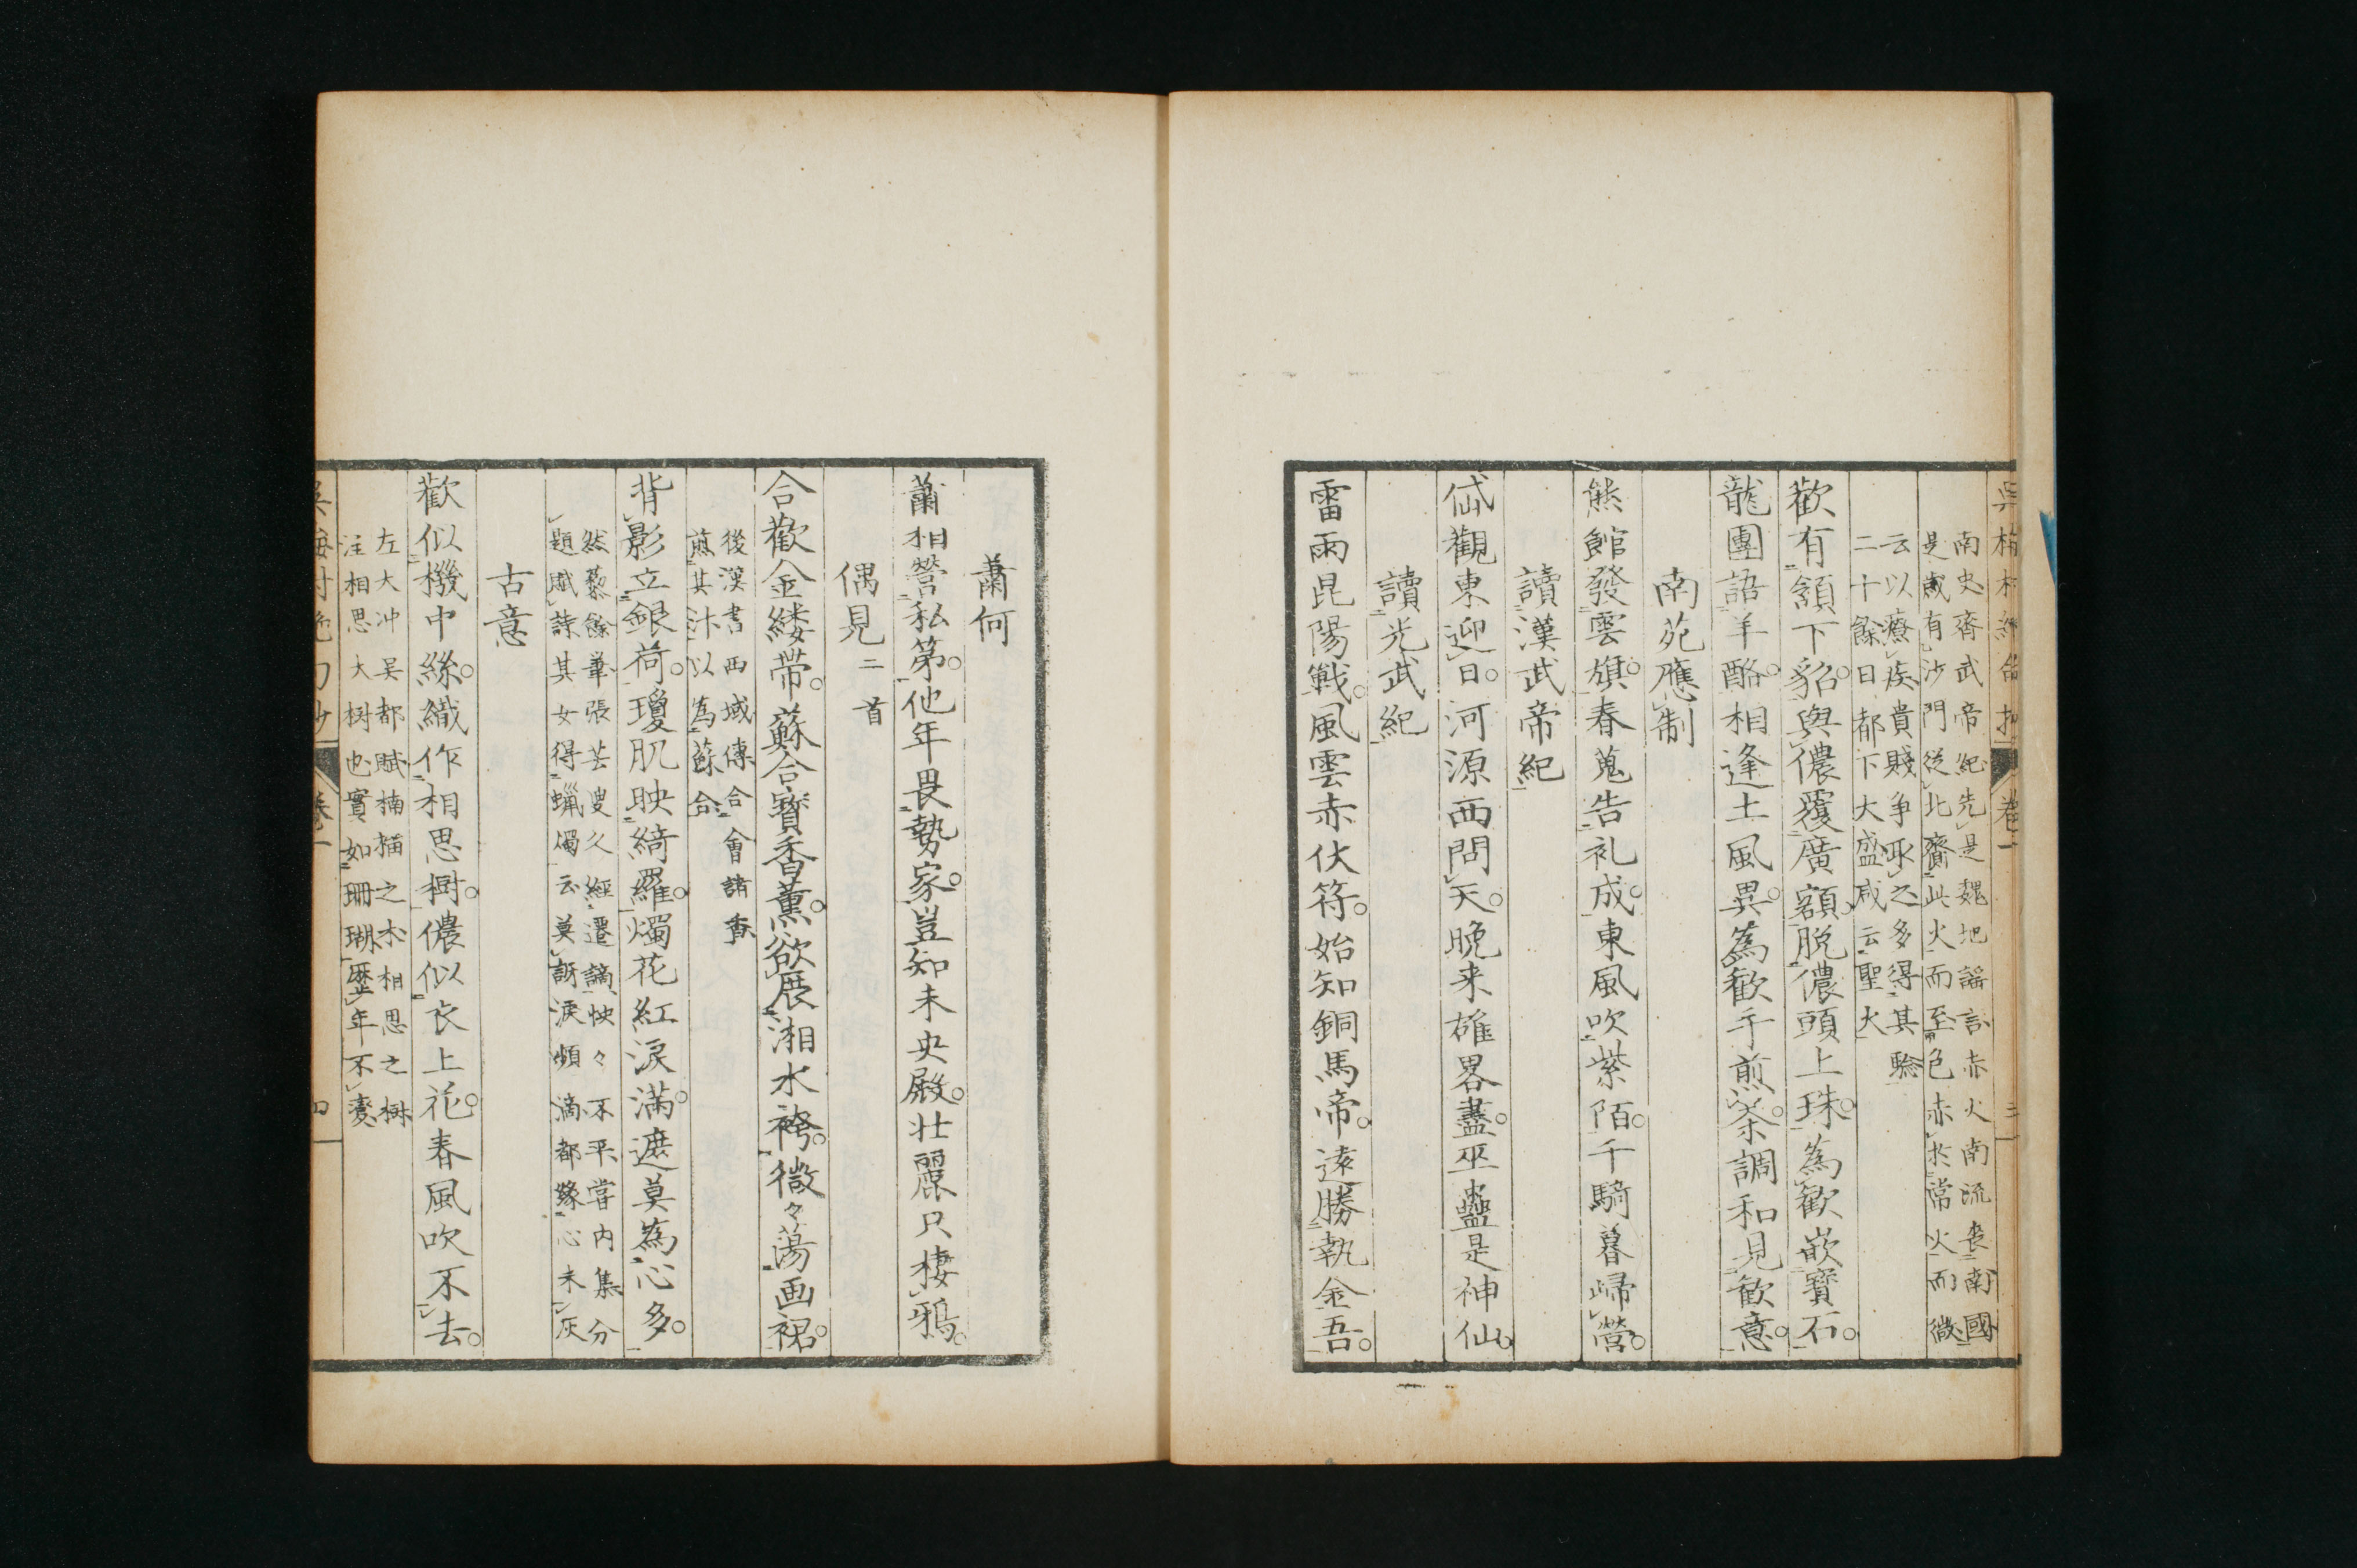 南史齊武帝紀先是魏地謡言赤火南流喪南國
是歳有沙門從北齎此火而至色赤於常火而微
云以療疾貴賤争取之多得其驗
二十餘日都下大盛咸云聖火
歡有頷下貂。與儂覆廣額。脱儂頭上珠。為歡嵌寶石。
龍團語羊酪。相逢土風異。為歡手煎茶。調和見歡意。
南苑應制
熊館發雲旗。春蒐告礼成。東風吹紫陌。千騎暮歸營。
讀漢武帝紀
岱觀東迎日。河源西問天。晩来雄畧盡。巫蠱是神仙。
讀光武紀
雷雨昆陽戰。風雲赤伏符。始知銅馬帝。遠勝執金吾。
蕭何
蕭相營私第。他年畏勢家。豈知未央殿。壮麗只棲鴉。
偶見二首
合歡金縷帯。蘇合寶香薫。欲展湘水袴。微々蕩画裙。
後漢書西域傳合會諸香
煎其汁以為蘇合
背影立銀荷。瓊肌映綺羅。燭花紅涙滿。遮莫為心多。
然藜餘筆張芸叟久經遷謫怏々不平嘗内集分
題賦詩其女得蝋燭云莫訝涙頻滴都縁心未灰
古意
歡似機中絲。織作相思樹。儂似衣上花。春風吹不去。
左大冲呉都賦楠榴之木相思之樹
注相思大樹也實如珊瑚歴年不變